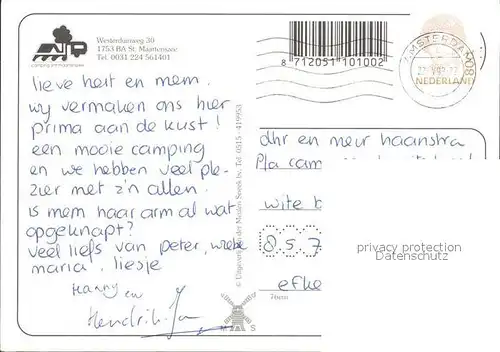 Westerduinweg 30
1753 BA St. Maartenszee
Tel. 0031 224 561401
8 712051 101002
AMSTERDAM
NEDERLAND
lieve heit en mem.
wy vermaken ons hier
prima aan de kust!
een mooie camping
en we hebben veel ple-
zier met z'n allen.
is mem haar arm al wat
opgeknapt?
veel liefs van peter, wiebe
maria, liesje
Hanny en
Hendrik Jan
© Uitgeverij van der Meulen Sneek bv. Tel. 0515 - 419953
dhr en mevr haanstra
p/a cam
wite b
8.5.7
efke
privacy protection
Datenschutz
M S